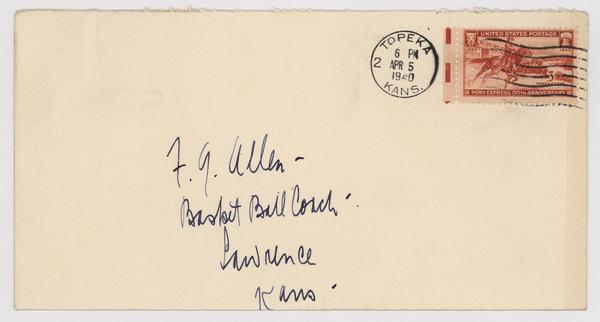 TOPEKA
2
6 PM
APR 5
1940
KANS.
UNITED STATES POSTAGE
3
PONY EXPRESS 80TH ANNIVERSARY
F. G. Allen -
Basket Ball Coach.
Lawrence
Kans.